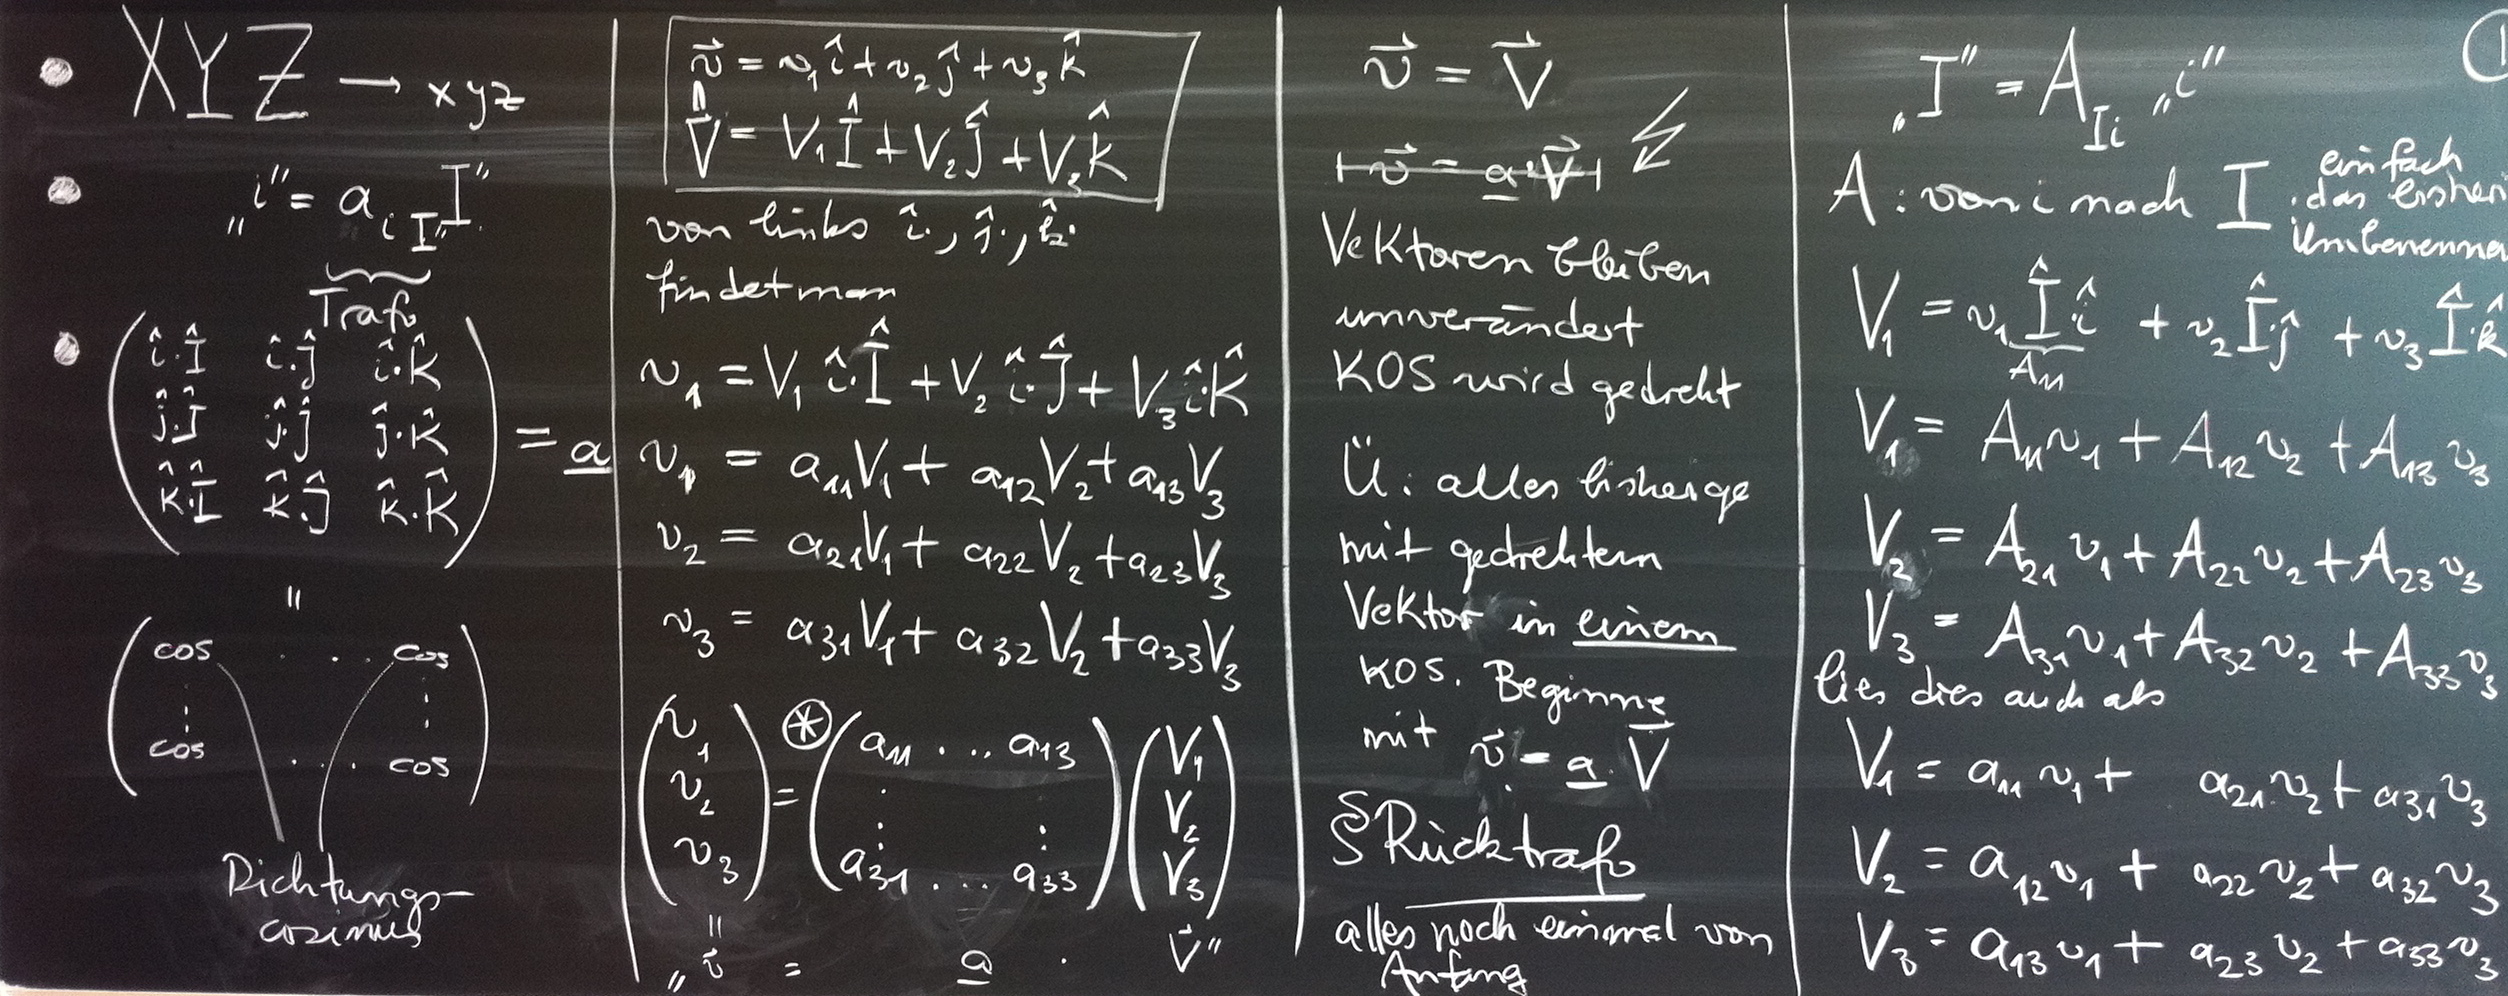 XYZ → xyz
„i" = a_{iI} „I"
Trafo
( î·Î î·Ĵ î·K̂
ĵ·Î ĵ·Ĵ ĵ·K̂ = a̲
k̂·Î k̂·Ĵ k̂·K̂ )
=
( cos . . . cos
cos . . . . cos )
Richtungs-
cosinus
v⃗ = v₁î + v₂ĵ + v₃k̂
=
V⃗ = V₁Î + V₂Ĵ + V₃K̂
von links î·, ĵ·, k̂·
findet man
v₁ = V₁ î·Î + V₂ î·Ĵ + V₃ î·K̂
v₁ = a₁₁V₁ + a₁₂V₂ + a₁₃V₃
v₂ = a₂₁V₁ + a₂₂V₂ + a₂₃V₃
v₃ = a₃₁V₁ + a₃₂V₂ + a₃₃V₃
( v₁ ⊛ ( a₁₁ . . . a₁₃ ) ( V₁
v₂ = V₂
v₃ ) ( a₃₁ . . . a₃₃ ) V₃ )
=
„v⃗ = a̲ · V⃗"
v⃗ = V⃗
v⃗ = a̲·V⃗
Vektoren bleiben
unverändert
KOS wird gedreht
Ü: alles bisherige
mit gedrehtem
Vektor in einem
KOS. Beginne
mit v⃗ = a̲·V⃗
§ Rücktrafo
alles noch einmal von
Anfang
①
„I" = A_{Ii} „i"
A: von i nach I einfach
das
V₁ = v₁ Î·î + v₂ Î·ĵ + v₃ Î·k̂
A₁₁
V₁ = A₁₁v₁ + A₁₂v₂ + A₁₃v₃
V₂ = A₂₁v₁ + A₂₂v₂ + A₂₃v₃
V₃ = A₃₁v₁ + A₃₂v₂ + A₃₃v₃
lies dies auch als
V₁ = a₁₁v₁ + a₂₁v₂ + a₃₁v₃
V₂ = a₁₂v₁ + a₂₂v₂ + a₃₂v₃
V₃ = a₁₃v₁ + a₂₃v₂ + a₃₃v₃